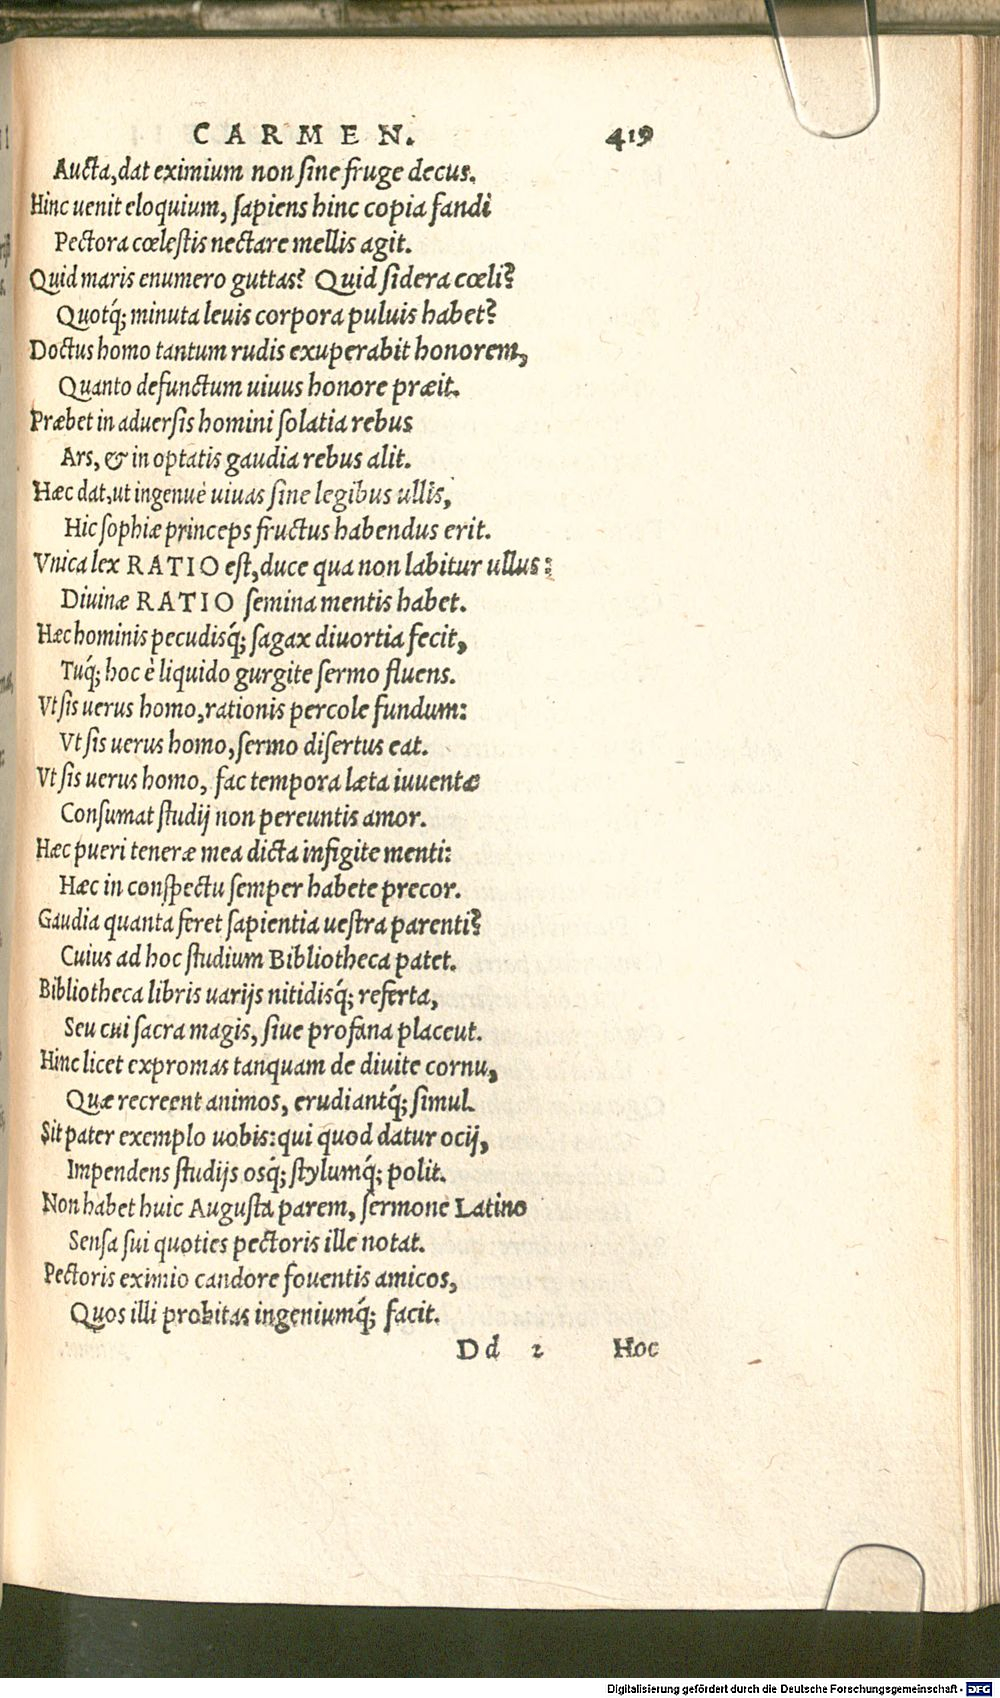 CARMEN. 419
Aucta, dat eximium non sine fruge decus.
Hinc uenit eloquium, sapiens hinc copia fandi
Pectora cœlestis nectare mellis agit.
Quid maris enumero guttas? Quid sidera cœli?
Quotq́; minuta leuis corpora puluis habet?
Doctus homo tantum rudis exuperabit honorem,
Quanto defunctum uiuus honore præit.
Præbet in aduersis homini solatia rebus
Ars, & in optatis gaudia rebus alit.
Hæc dat, ut ingenuè uiuas sine legibus ullis,
Hic sophiæ princeps fructus habendus erit.
Vnica lex RATIO est, duce qua non labitur ullus:
Diuinæ RATIO semina mentis habet.
Hæc hominis pecudisq́; sagax diuortia fecit,
Tuq́; hoc è liquido gurgite sermo fluens.
Vt sis uerus homo, rationis percole fundum:
Vt sis uerus homo, sermo disertus eat.
Vt sis uerus homo, fac tempora læta iuuentæ
Consumat studij non pereuntis amor.
Hæc pueri teneræ mea dicta infigite menti:
Hæc in conspectu semper habete precor.
Gaudia quanta feret sapientia uestra parenti?
Cuius ad hoc studium Bibliotheca patet.
Bibliotheca libris uarijs nitidisq́; referta,
Seu cui sacra magis, siue profana placeut.
Hinc licet expromas tanquam de diuite cornu,
Quæ recreent animos, erudiantq́; simul.
Sit pater exemplo uobis: qui quod datur ocij,
Impendens studijs osq́; stylumq́; polit.
Non habet huic Augusta parem, sermone Latino
Sensa sui quoties pectoris ille notat.
Pectoris eximio candore fouentis amicos,
Quos illi probitas ingeniumq́; facit.
Dd 2 Hoc
Digitalisierung gefördert durch die Deutsche Forschungsgemeinschaft - DFG